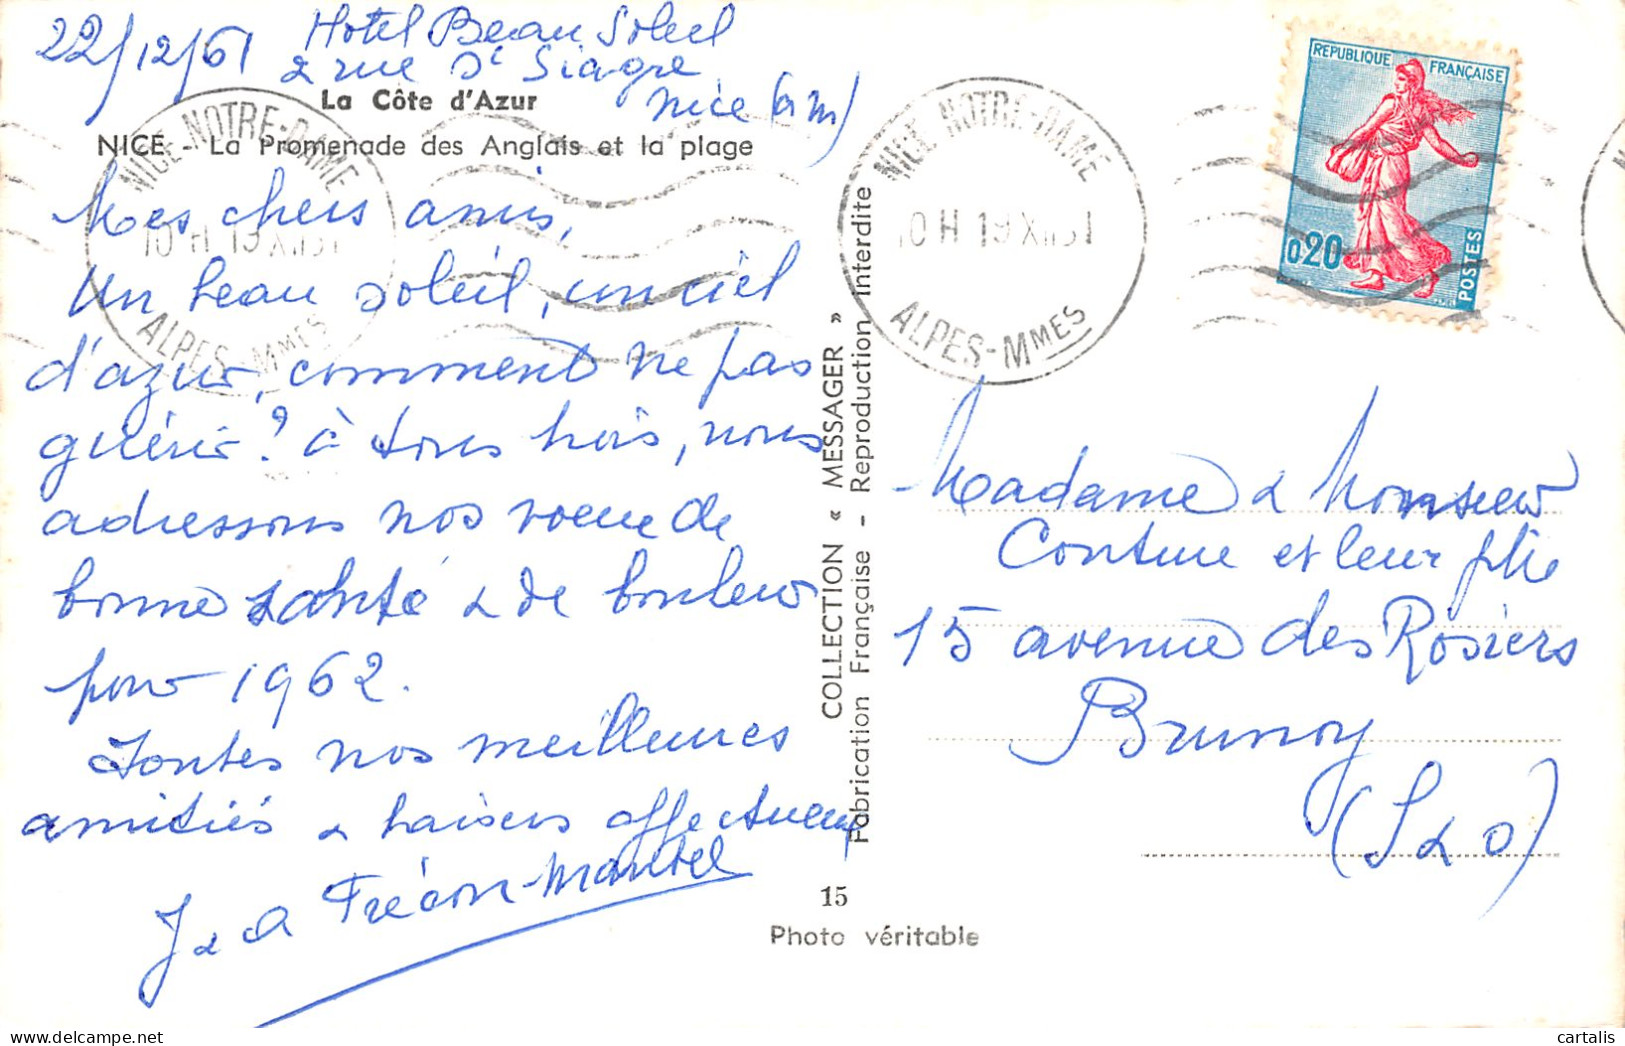 22/12/61 Hotel Beau Soleil
2 rue St Siagre
Nice (a m)
La Côte d'Azur
NICE - La Promenade des Anglais et la plage
Mes chers amis,
Un beau soleil, un ciel
d'azur, comment ne pas
guérir ? à tous trois, nous
adressons nos voeux de
bonne santé & de bonheur
pour 1962.
Toutes nos meilleures
amitiés & baisers affectueux
J & A Frécon-Mantel
COLLECTION « MESSAGER »
Fabrication Française - Reproduction interdite
15
Photo véritable
NICE NOTRE-DAME
ALPES-MMES
NICE NOTRE-DAME
10 H 19 XII
ALPES-MMES
REPUBLIQUE FRANÇAISE
0,20
POSTES
Madame & Monsieur
Couture et leur fille
15 avenue des Rosiers
Brunoy
(S & O)
cartalis
www.delcampe.net